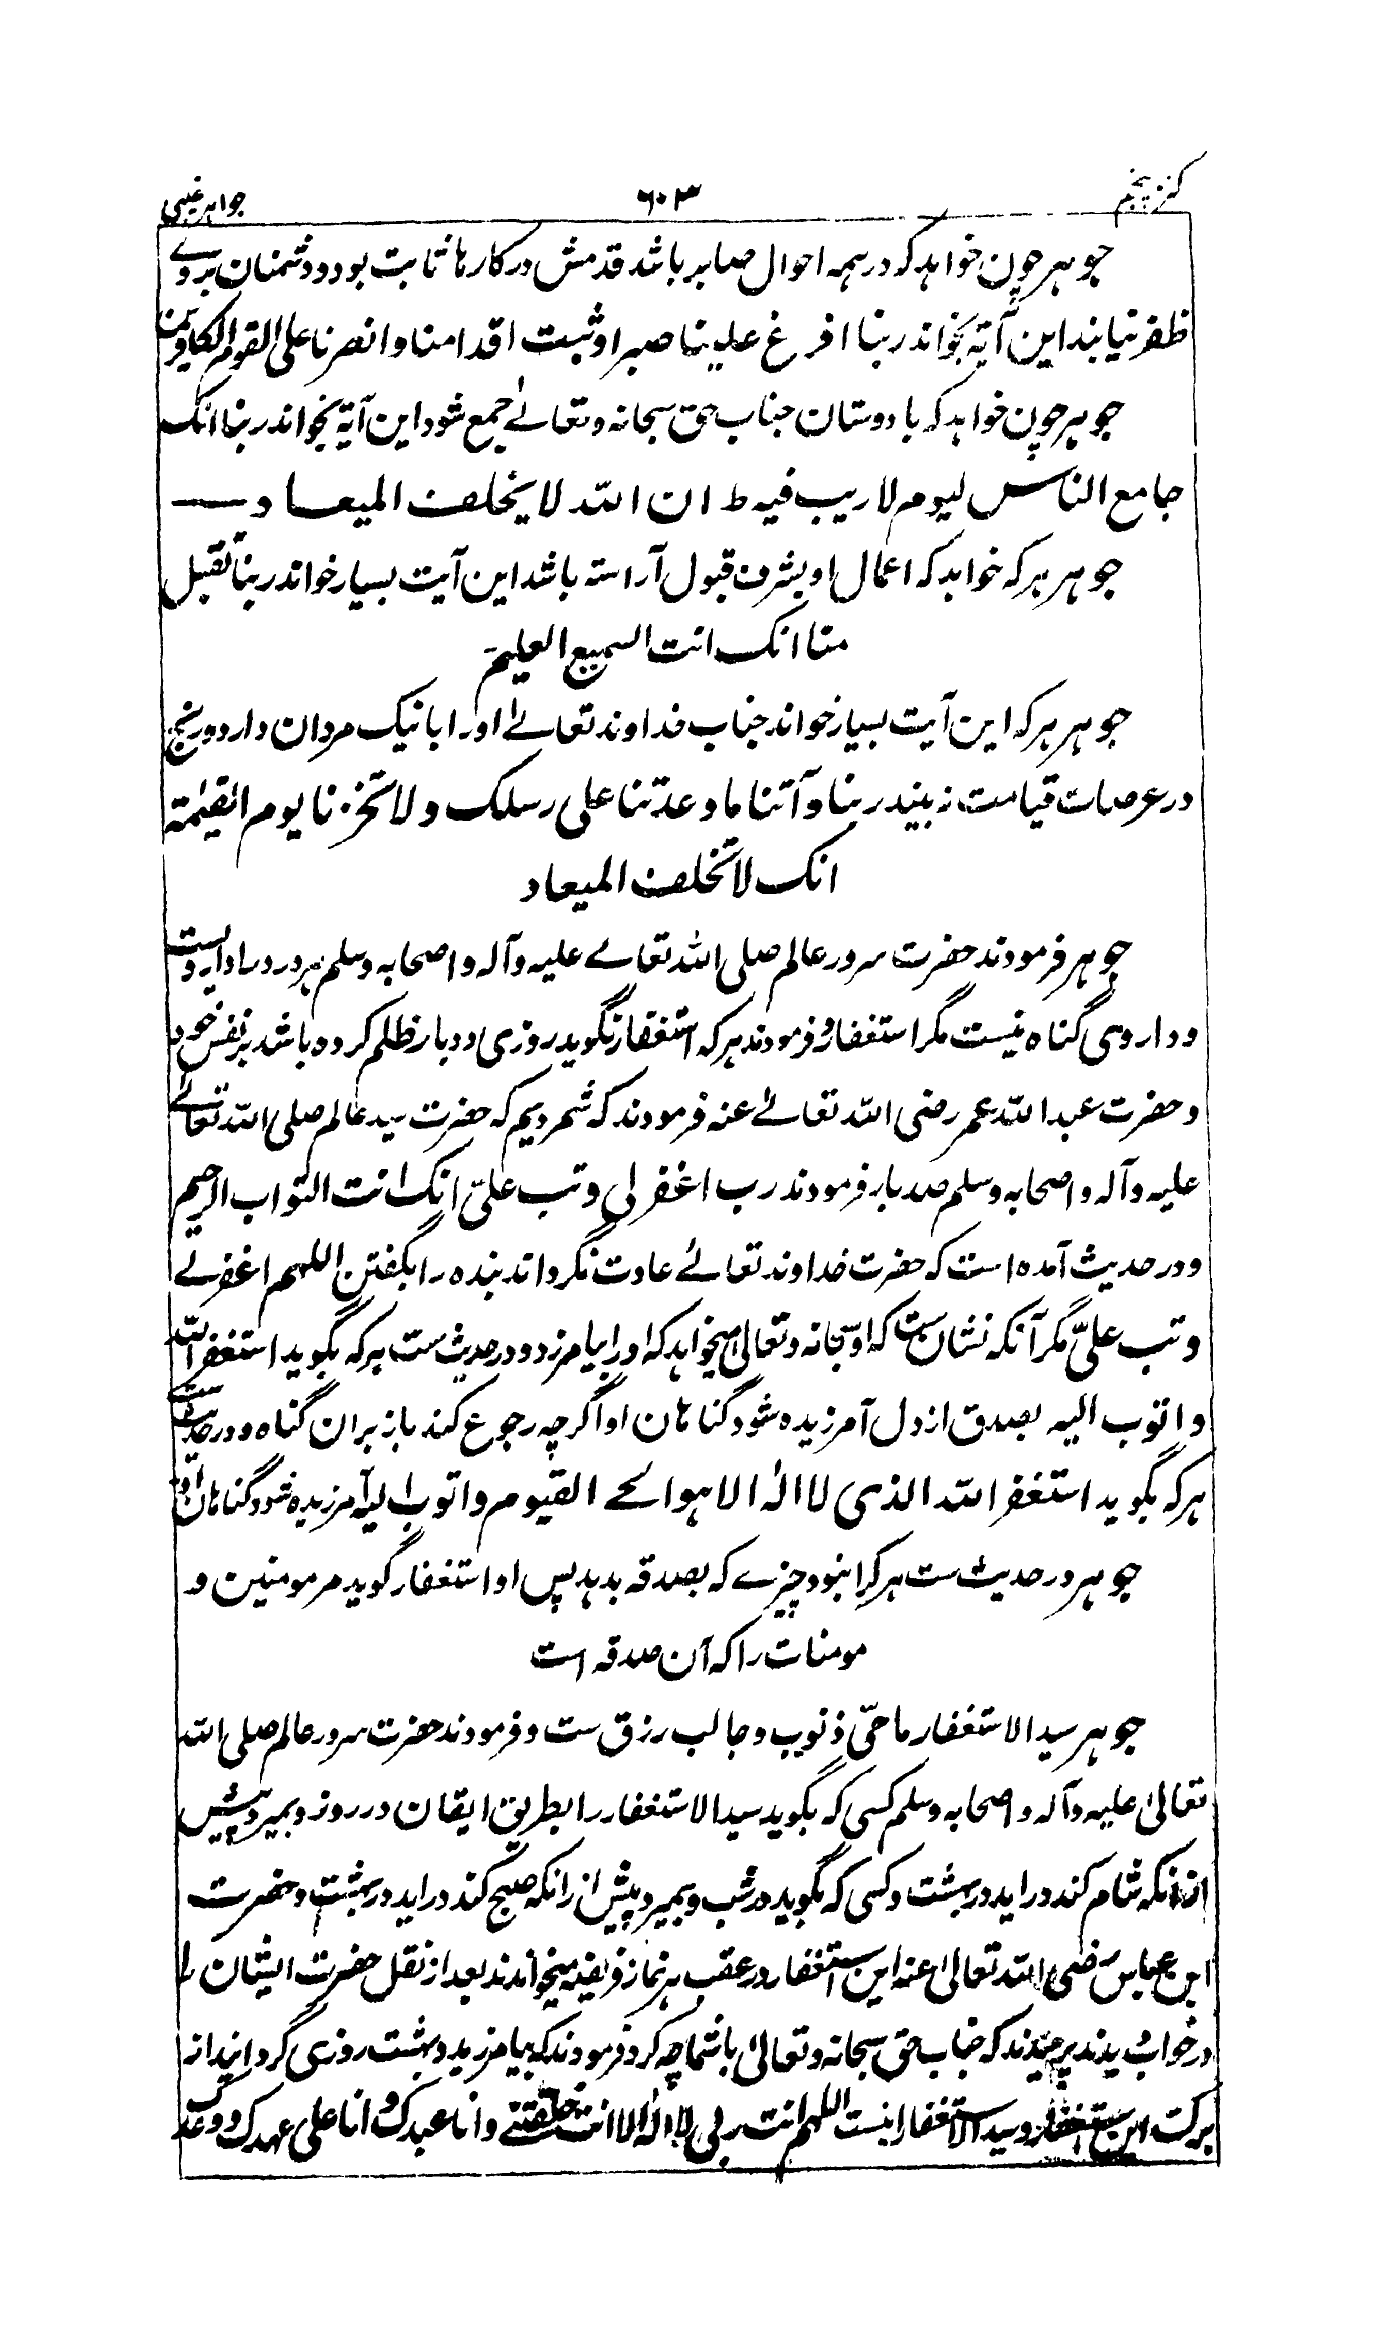 کنز پنجم ۶۰۳ جواہر غیبی
جوہر چون خواہد کہ در ہمہ احوال صابر باشد قدمش در کارہا ثابت بود و دشمنان بر وے
ظفر نیابند این آیۃ بخواند ربنا افرغ علینا صبرا و ثبت اقدامنا وانصرنا علی القوم الکافرین
جوہر چون خواہد کہ با دوستان جناب حق سبحانہ و تعالےٰ جمع شود این آیۃ بخواند ربنا انک
جامع الناس لیوم لا ریب فیہ ط ان اللہ لا یخلف المیعاد
جوہر ہر کہ خواہد کہ اعمال او بشرف قبول آراستہ باشد این آیت بسیار خواند ربنا تقبل
منا انک انت السمیع العلیم
جوہر ہر کہ این آیت بسیار خواند جناب خداوند تعالےٰ او را با نیک مردان دارد و رنج
در عرصات قیامت نہ بیند ربنا و آتنا ما وعدتنا علی رسلک ولا تخزنا یوم القیٰمۃ
انک لا تخلف المیعاد
جوہر فرمودند حضرت سرور عالم صلی اللہ تعالے علیہ وآلہ و اصحابہ وسلم ہر درد را داروست
و داروی گناہ نیست مگر استغفار و فرمودند ہر کہ استغفار نگوید روزی دو بار ظلم کردہ باشد بر نفس خود
و حضرت عبداللہ عمر رضی اللہ تعالےٰ عنہ فرمودند کہ شمردیم کہ حضرت سید عالم صلی اللہ تعالےٰ
علیہ وآلہ و اصحابہ وسلم صد بار فرمودند رب اغفرلی و تب علیّ انک انت التواب الرحیم
و در حدیث آمدہ است کہ حضرت خداوند تعالےٰ عادت نگرداند بندہ را بگفتن اللہم اغفرلے
و تب علیّ مگر آنکہ نشان ست کہ او سبحانہ و تعالیٰ میخواہد کہ او را بیامرزد و در حدیث ست ہر کہ بگوید استغفر اللہ
و اتوب الیہ بصدق از دل آمرزیدہ شود گناہان او اگرچہ رجوع کند باز بران گناہ و در حدیث ست
ہر کہ بگوید استغفر اللہ الذی لا الٰہ الا ہو الحے القیوم و اتوب الیہ آمرزیدہ شود گناہان او
جوہر در حدیث ست ہر کرا نبود چیزے کہ بصدقہ بدہد پس او استغفار گوید مر مومنین و
مومنات را کہ آن صدقہ است
جوہر سید الاستغفار ماحیّ ذنوب و جالب رزق ست و فرمودند حضرت سرور عالم صلی اللہ
تعالیٰ علیہ وآلہ و اصحابہ وسلم کسی کہ بگوید سید الاستغفار را بطریق ایقان در روز و بمیرد پیش
ازانکہ شام کند در اید در بہشت و کسی کہ بگوید در شب و بمیرد پیش ازانکہ صبح کند در اید در بہشت و حضرت
ابن عباس رضی اللہ تعالیٰ عنہ این استغفار در عقب ہر نماز فریضہ میخواندند بعد از نقل حضرت ایشان را
در خواب دیدند پرسیدند کہ جناب حق سبحانہ و تعالیٰ با شما چہ کرد فرمودند کہ بیامرزید و بہشت روزی گردانید از
برکت این استغفار و سید الاستغفار اینست اللہم انت ربی لا الٰہ الا انت خلقتنے و انا عبدک و انا علی عہدک و وعدک